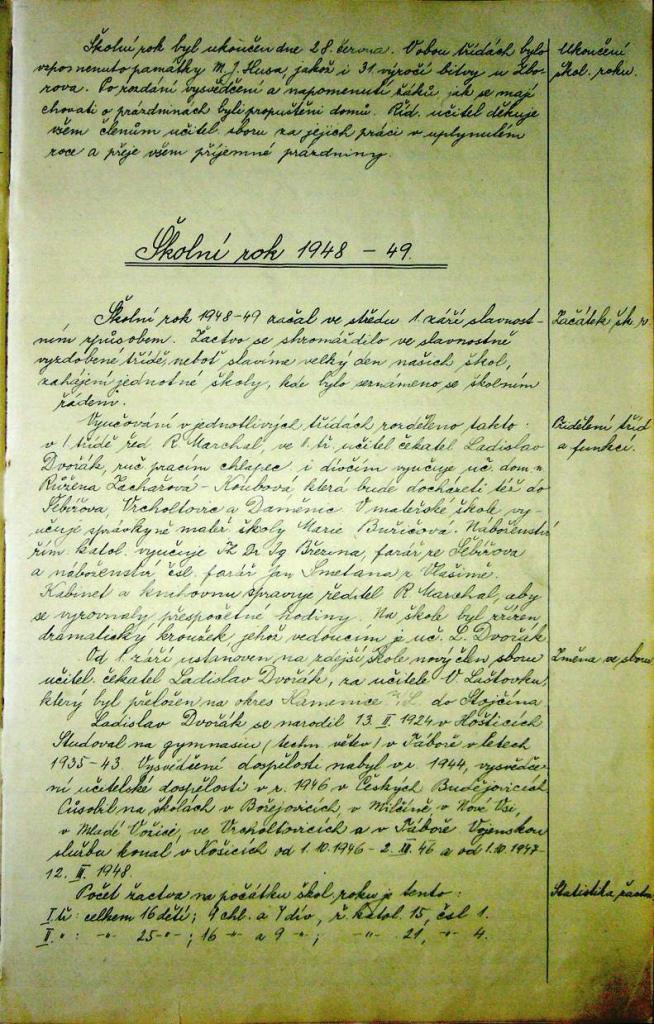 Školní rok byl ukončen dne 28. června. V obou třídách bylo
vzpomenuto památky M. J. Husa jakož i 31 výročí bitvy u Zbo-
rova. Po rozdání vysvědčení a napomenutí žáků jak se mají
chovati o prázdninách byli propuštěni domů. Říd. učitel děkuje
všem členům učitel. sboru za jejich práci v uplynulém
roce a přeje všem příjemné prázdniny.
Ukončení
škol. roku.
Školní rok 1948 – 49.
Školní rok 1948-49 začal ve středu 1. září slavnost-
ním způsobem. Žactvo se shromáždilo ve slavnostně
vyzdobené třídě, neboť slavíme velký den našich škol,
zahájení jednotné školy, kde bylo seznámeno se školním
řádem.
Začátek šk. r.
Vyučování v jednotlivých třídách rozděleno takto:
v I. třídě řed. R. Marchal, ve II. tř. učitel čekatel Ladislav
Dvořák, ruč. pracím chlapec. i dívčím vyučuje uč. dom. n.
Růžena Zachařová-Koubová, která bude docházeti též do
Šebířova, Vrcholtovic a Daměnic. V mateřské škole vy-
učuje správkyně mateř. školy Marie Buřičová. Náboženství
řím. katol. vyučuje Dr Ig. Březina, farář ze Šebířova
a náboženství čsl. farář Jan Smetana z Vlašimě.
Kabinet a knihovnu spravuje ředitel R. Marchal, aby
se vyrovnaly přespočetné hodiny. Na škole byl zřízen
dramatický kroužek, jehož vedoucím je uč. L. Dvořák.
Přidělení tříd
a funkcí.
Od 1. září ustanoven na zdejší škole nový člen sboru
učitel. čekatel Ladislav Dvořák, za učitele V. Laštovku,
který byl přeložen na okres Kamenice n/L. do Stojčína.
Změna ve sboru
Ladislav Dvořák se narodil 13. II. 1924 v Hošticích.
Studoval na gymnasiu (techn. větev) v Táboře v letech
1935-43. Vysvědčení dospělosti nabyl v r. 1944, vysvědče-
ní učitelské dospělosti v r. 1946 v Českých Budějovicích.
Působil na školách v Bořejovicích, v Milčíně, v Nové Vsi,
v Mladé Vožici, ve Vrcholtovicích a v Táboře. Vojenskou
službu konal v Košicích od 1.10.1946 - 2. 46 a od 1.10.1947-
12. 1948.
Počet žactva na počátku škol. roku je tento:
I. tř: celkem 16 dětí; 9 chl. a 7 dív., ř. katol. 15, čsl. 1.
II. " : -"- 25 -"- ; 16 -"- a 9 -"- ; -"- 21, -"- 4.
Statistika žactva